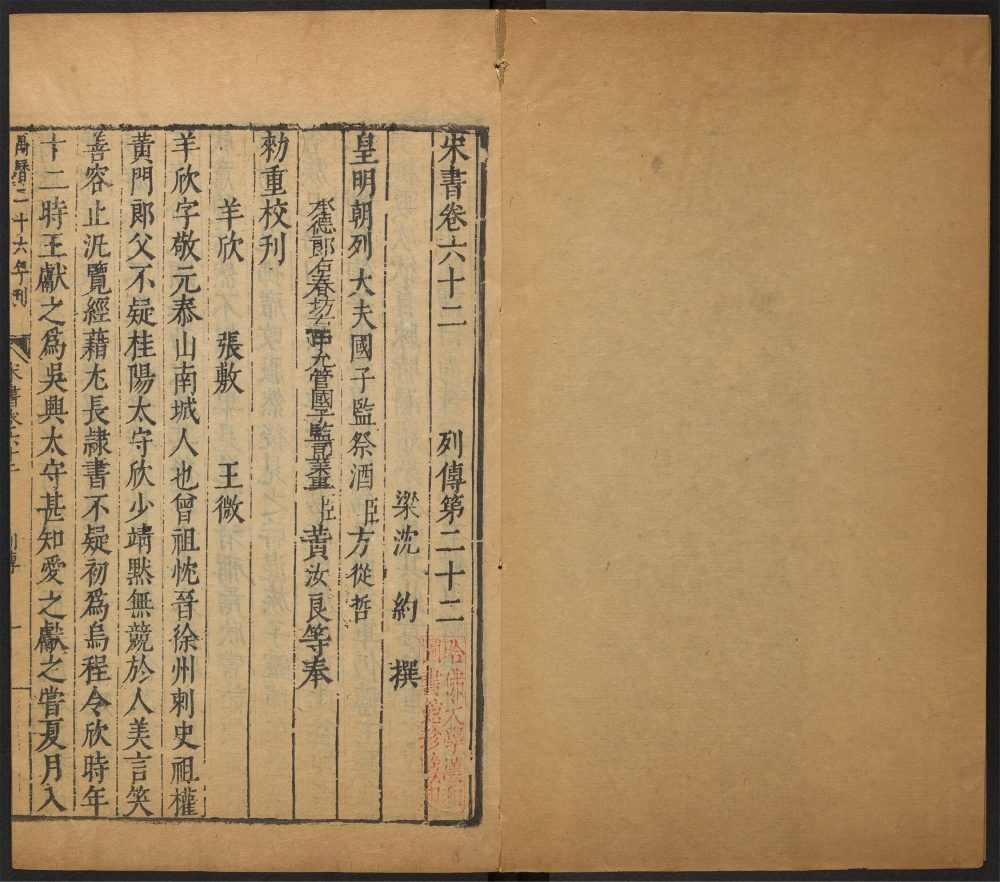 宋書卷六十二　列傳第二十二
梁沈約　撰
皇明朝列大夫國子監祭酒臣方從哲
承德郎右春坊右中允管國子監司業事臣黃汝良等奉
勑重校刊
羊欣　張敷　王微
羊欣字敬元泰山南城人也曾祖忱晉徐州刺史祖權
黃門郎父不疑桂陽太守欣少靖黙無競於人美言笑
善容止汎覽經藉尤長隷書不疑初爲烏程令欣時年
十二時王獻之爲吳興太守甚知愛之獻之嘗夏月入
萬曆二十六年刊　宋書卷六十二　列傳　一
哈佛大學漢和
圖書館珍藏印